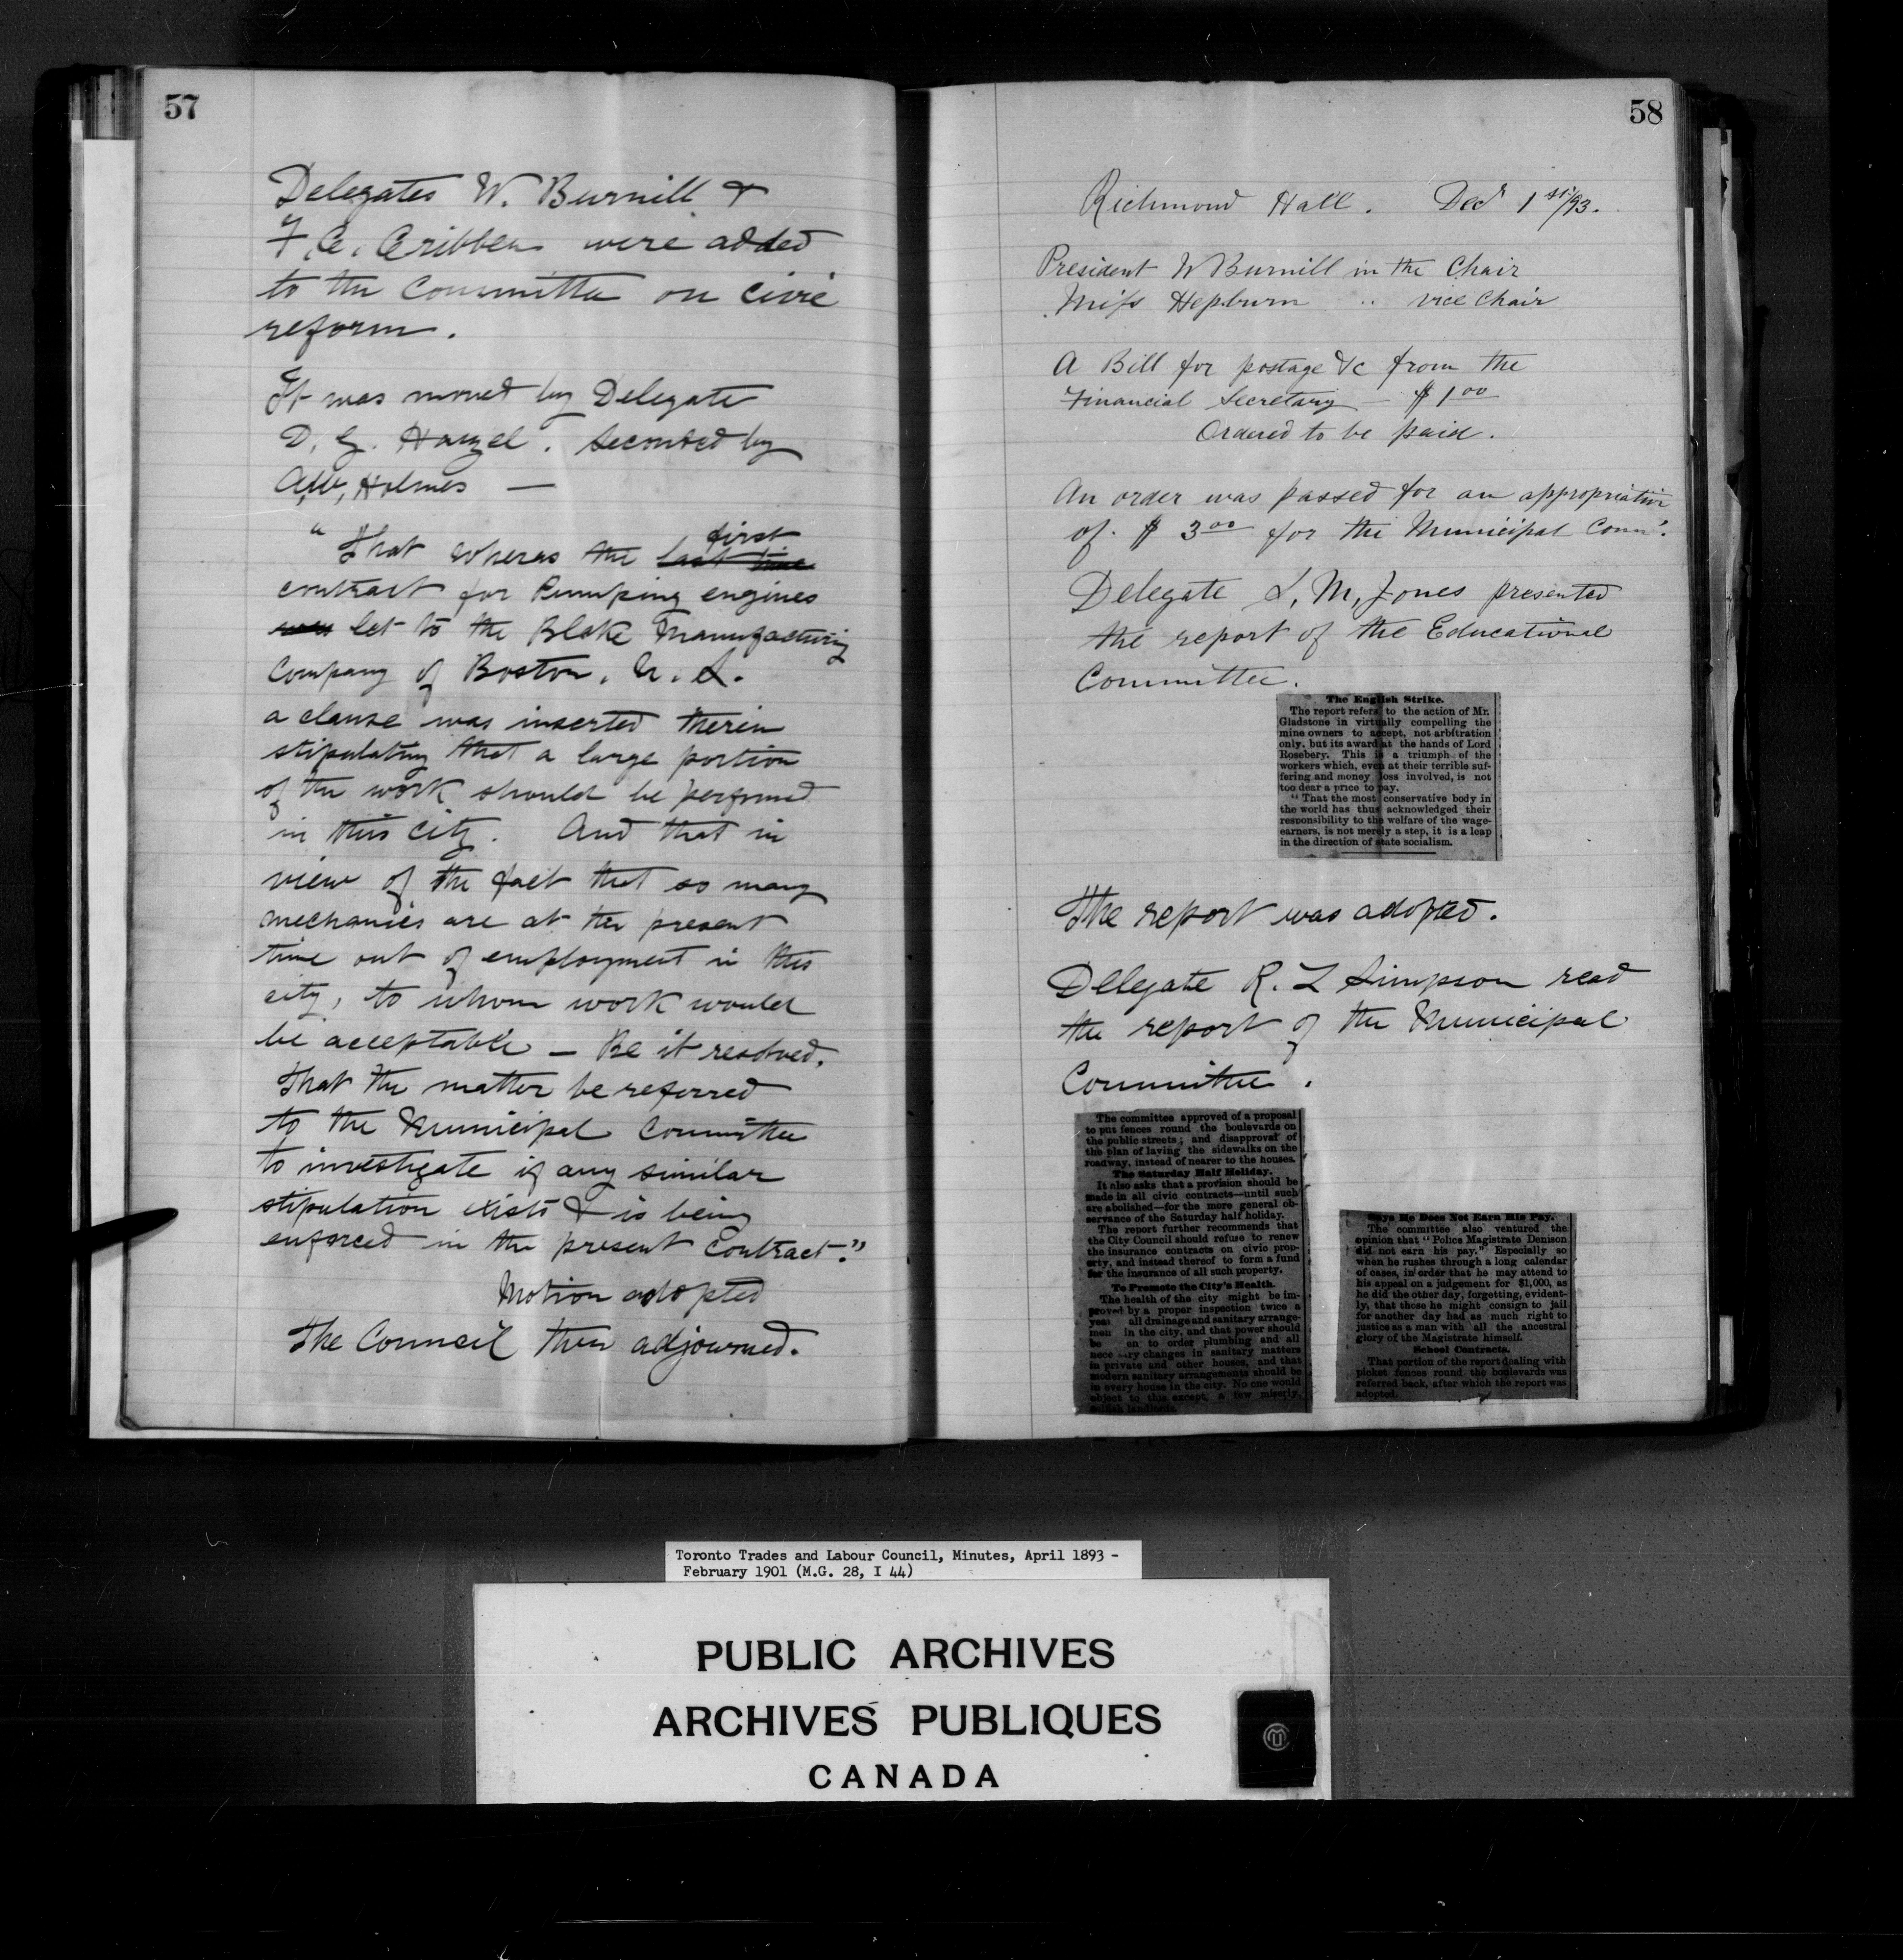 57
Delegates W. Burnill &
F. C. Cribben were added
to the Committee on Civic
reform.
It was moved by Delegate
D. G. Hanzel. Seconded by
A.W. Holmes —
"That wheras the last time first
contract for Pumping engines
was let to the Blake Manufacturing
Company of Boston. U. S.
a clause was inserted therein
stipulating that a large portion
of the work should be performed
in this city. And that in
view of the fact that so many
mechanics are at the present
time out of employment in this
city, to whom work would
be acceptable — Be it resolved.
That the matter be referred
to the Municipal Committee
to investigate if any similar
stipulation exists & is being
enforced in the present Contract."
Motion adopted
The Council then adjourned.
58
Richmond Hall. Decr 1st/93.
President W Burnill in the Chair
Miss Hepburn " Vice Chair
A Bill for postage &c from the
Financial Secretary — $1.00
Ordered to be paid.
An order was passed for an appropriation
of $3.00 for the Municipal Com.
Delegate L. M. Jones presented
the report of the Educational
Committee.
The English Strike.
The report refers to the action of Mr.
Gladstone in virtually compelling the
mine owners to accept, not arbitration
only, but its award at the hands of Lord
Rosebery. This is a triumph of the
workers which, even at their terrible suf-
fering and money loss involved, is not
too dear a price to pay.
"That the most conservative body in
the world has thus acknowledged their
responsibility to the welfare of the wage-
earners, is not merely a step, it is a leap
in the direction of state socialism.
The report was adopted.
Delegate R. L Simpson read
the report of the Municipal
Committee.
The committee approved of a proposal
to put fences round the boulevards on
the public streets; and disapproval of
the plan of laying the sidewalks on the
roadway, instead of nearer to the houses.
The Saturday Half Holiday.
It also asks that a provision should be
made in all civic contracts—until such
are abolished—for the more general ob-
servance of the Saturday half holiday.
The report further recommends that
the City Council should refuse to renew
the insurance contracts on civic prop-
erty, and instead thereof to form a fund
for the insurance of all such property.
To Promote the City's Health.
The health of the city might be im-
proved by a proper inspection twice a
year all drainage and sanitary arrange-
men in the city, and that power should
be en to order plumbing and all
nece ary changes in sanitary matters
in private and other houses, and that
modern sanitary arrangements should be
in every house in the city. No one would
object to this except, a few miserly,
selfish landlords.
Says He Does Not Earn His Pay.
The committee also ventured the
opinion that "Police Magistrate Denison
did not earn his pay." Especially so
when he rushes through a long calendar
of cases, in order that he may attend to
his appeal on a judgement for $1,000, as
he did the other day, forgetting, evident-
ly, that those he might consign to jail
for another day had as much right to
justice as a man with all the ancestral
glory of the Magistrate himself.
School Contracts.
That portion of the report dealing with
picket fences round the boulevards was
referred back, after which the report was
adopted.
Toronto Trades and Labour Council, Minutes, April 1893 -
February 1901 (M.G. 28, I 44)
PUBLIC ARCHIVES
ARCHIVES PUBLIQUES
CANADA